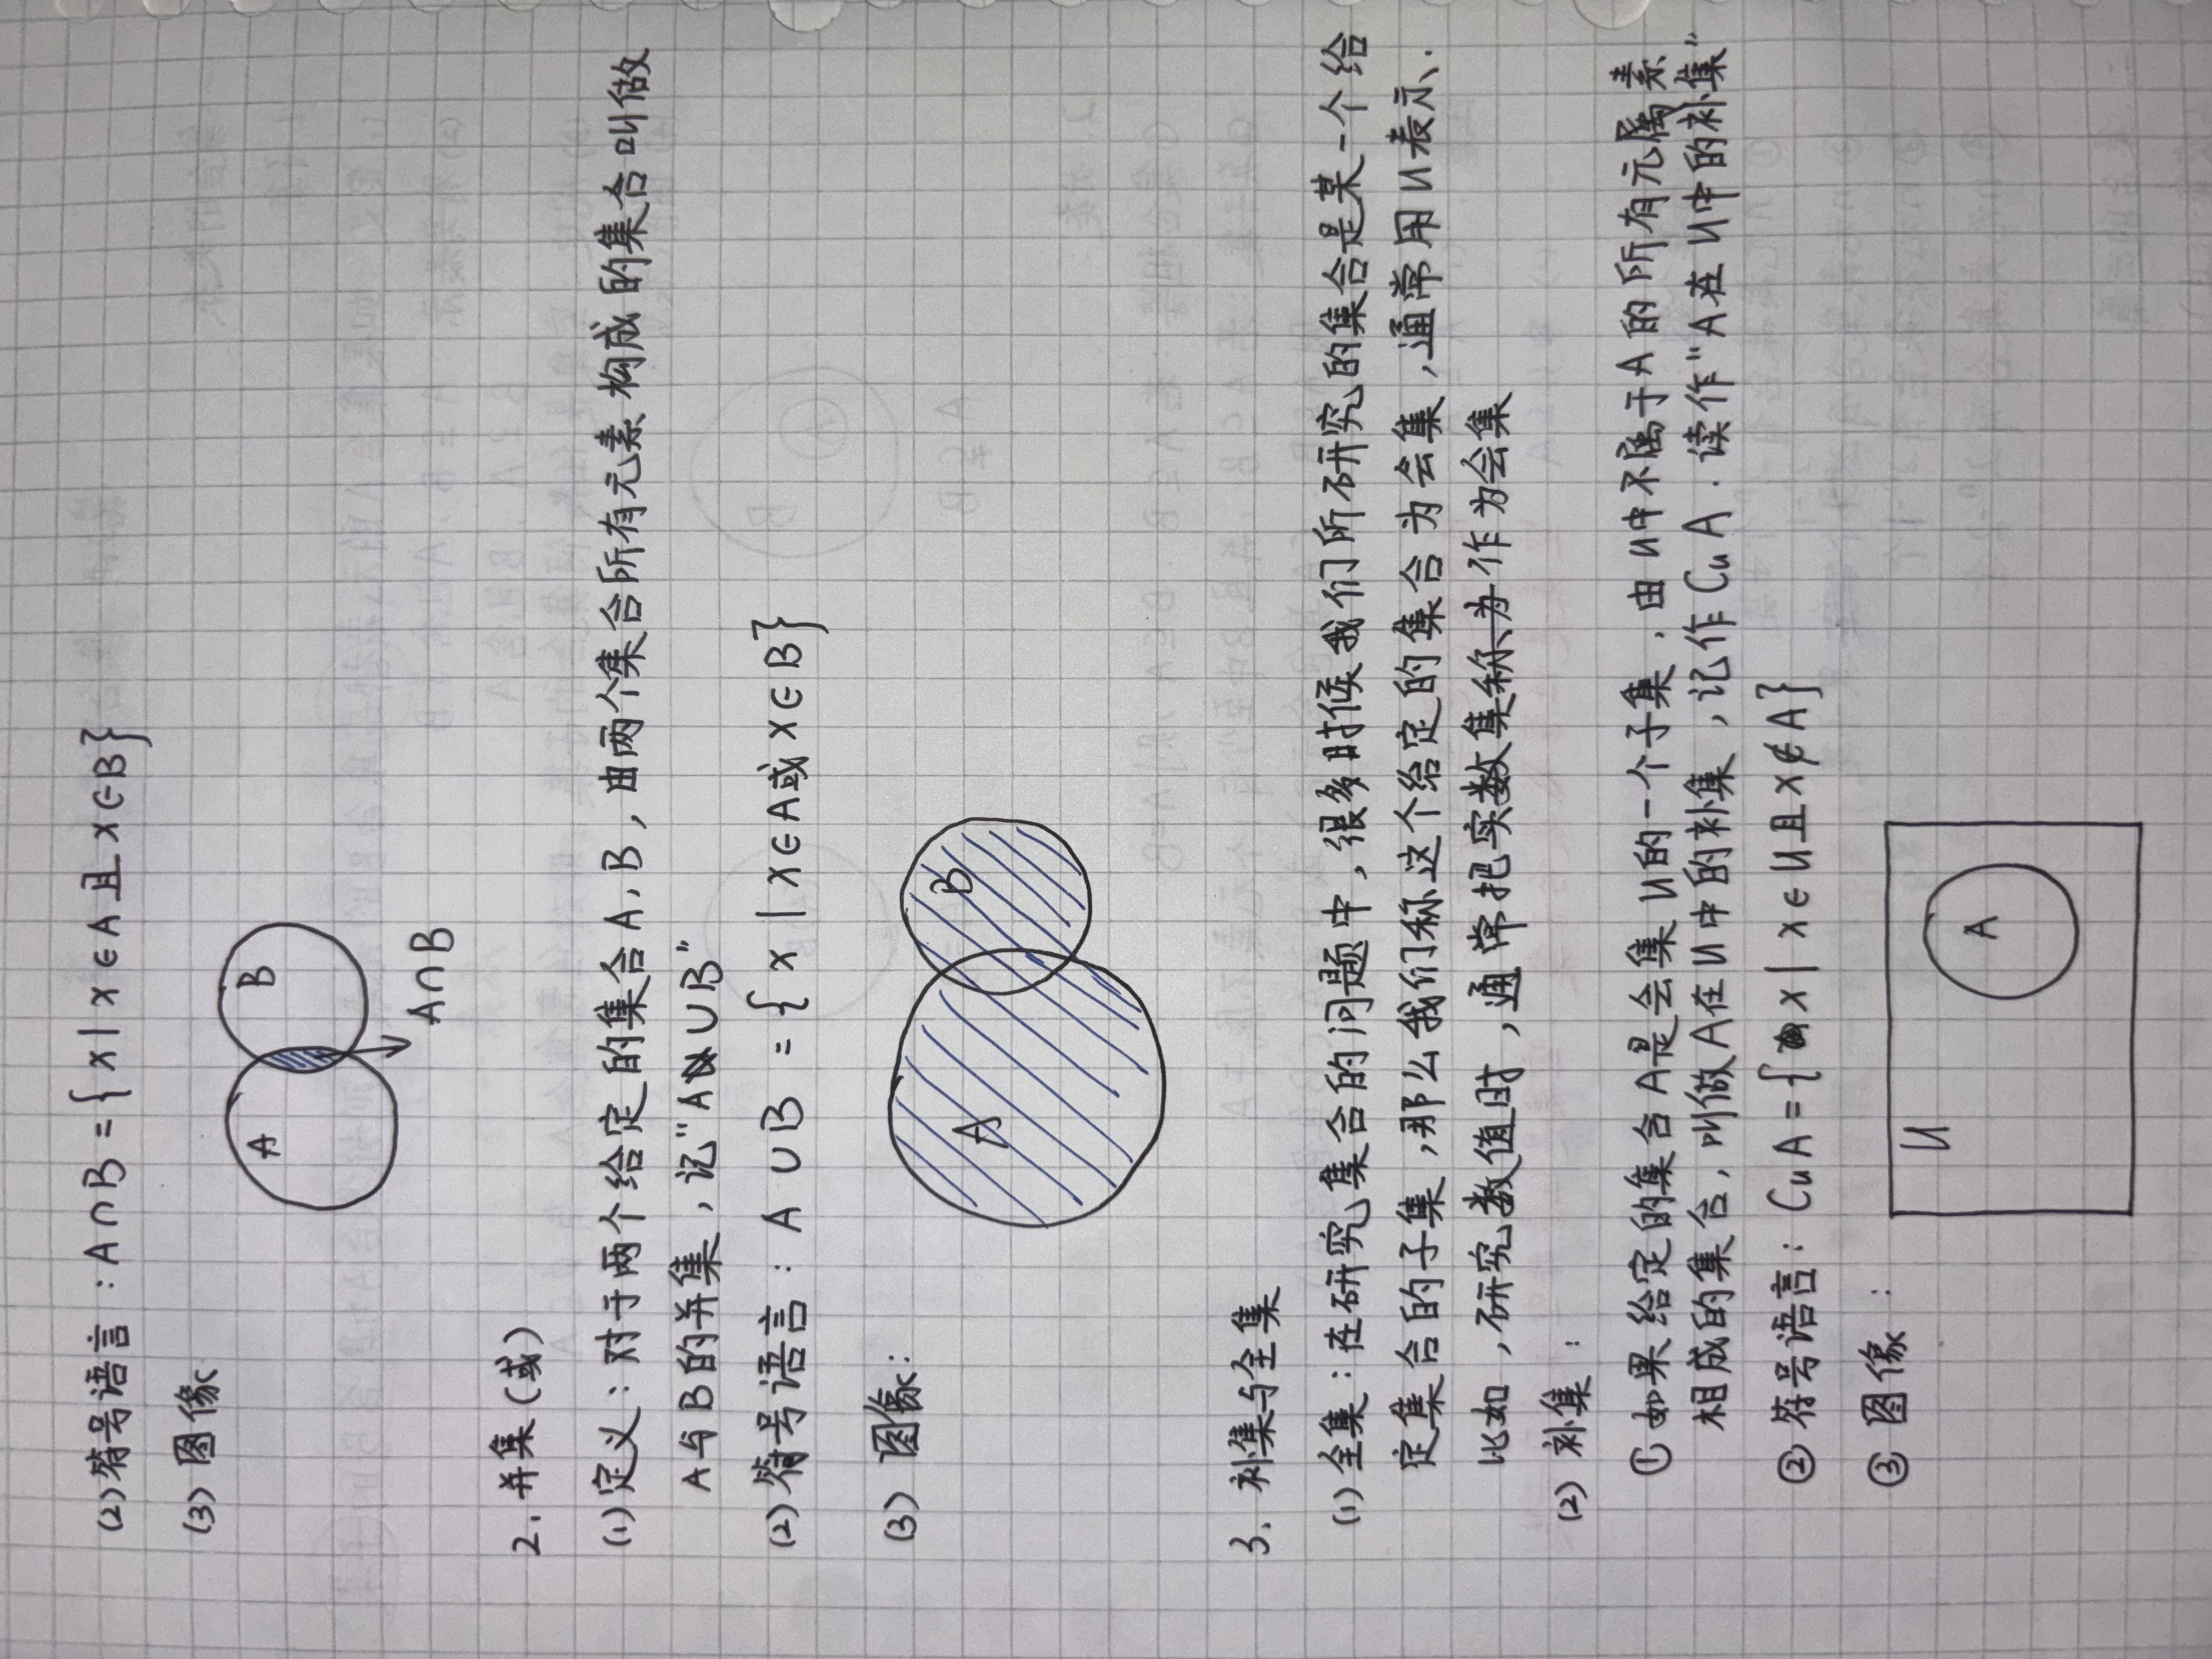 (2)符号语言:A∩B={x|x∈A且x∈B}
(3)图像
A
B
A∩B
2.并集(或)
(1)定义:对于两个给定的集合A,B,由两个集合所有元素构成的集合叫做
A与B的并集,记"A∪B"
(2)符号语言:A∪B={x|x∈A或x∈B}
(3)图像:
A
B
3.补集与全集
(1)全集:在研究集合的问题中,很多时候我们所研究的集合是某一个给
定集合的子集,那么我们称这个给定的集合为会集,通常用U表示.
比如,研究数值时,通常把实数集作为会集
(2)补集:
①如果给定的集合A是会集U的一个子集,由U中不属于A的所有元属素
相成的集合,叫做A在U中的补集,记作CuA.读作"A在U中的补集"
②符号语言:CuA={x|x∈U且x∉A}
③图像:
U
A